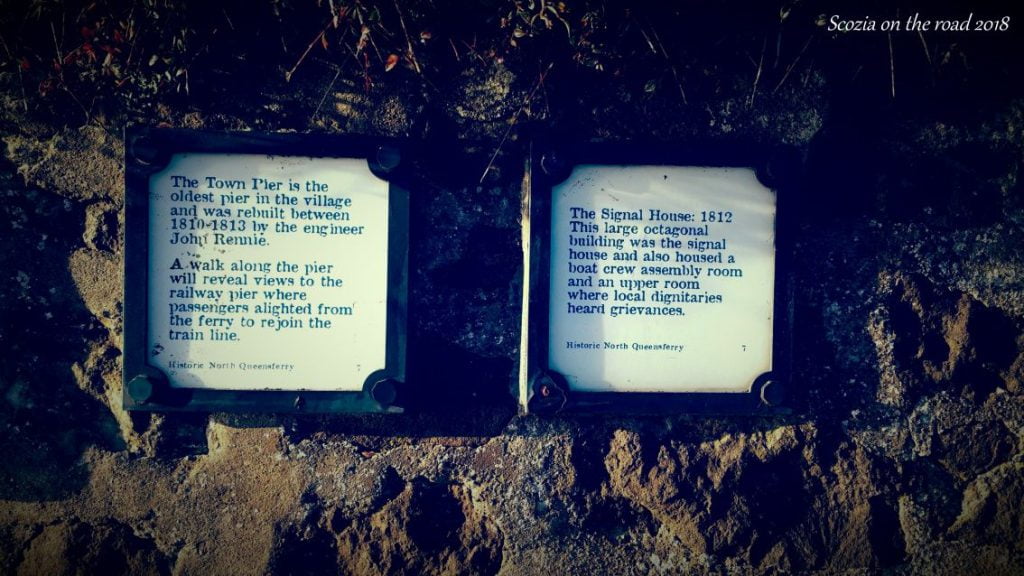 Scozia on the road 2018
The Town Pier is the
oldest pier in the village
and was rebuilt between
1810-1813 by the engineer
John Rennie.
A walk along the pier
will reveal views to the
railway pier where
passengers alighted from
the ferry to rejoin the
train line.
Historic North Queensferry 7
The Signal House: 1812
This large octagonal
building was the signal
house and also housed a
boat crew assembly room
and an upper room
where local dignitaries
heard grievances.
Historic North Queensferry 7